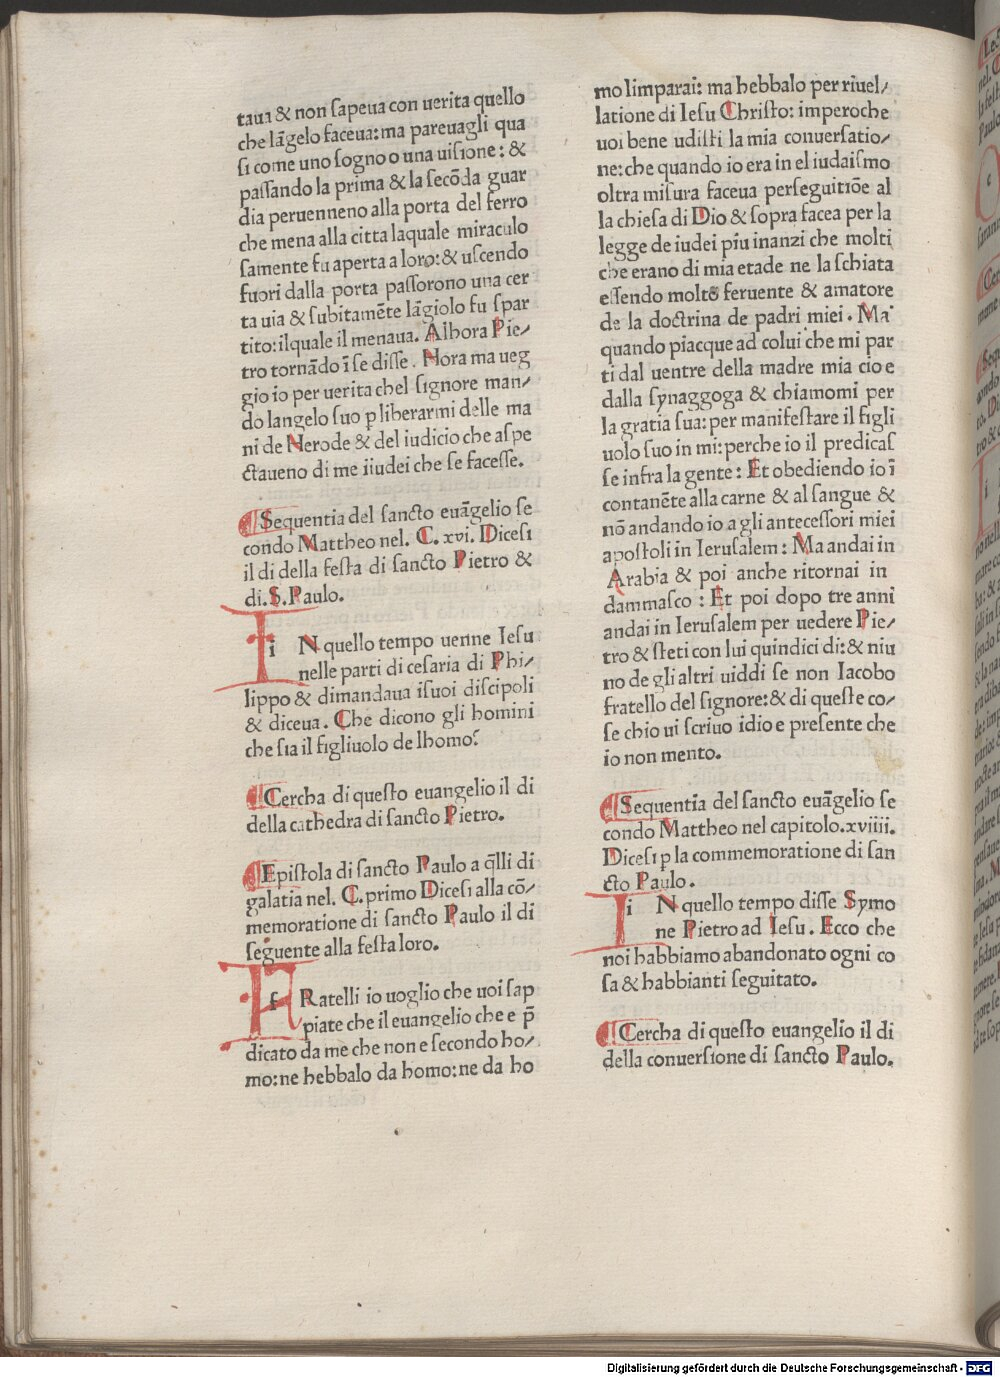 taua & non sapeua con uerita quello
che lāgelo faceua: ma pareuagli qua
si come uno sogno o una uisione: &
passando la prima & la secōda guar
dia peruenneno alla porta del ferro
che mena alla citta laquale miraculo
samente fu aperta a loro: & uscendo
fuori dalla porta passorono una cer
ta uia & subitamēte lāgiolo fu spar
tito: ilquale il menaua. Alhora Pie/
tro tornādo ī se disse. Hora ma ueg
gio io per uerita chel signore man/
do langelo suo p liberarmi delle ma
ni de Herode & del iudicio che aspe
ctaueno di me iiudei che se facesse.
Sequentia del sancto euāgelio se
condo Mattheo nel. C. xvi. Dicesi
il di della festa di sancto Pietro &
di. S. Paulo.
i IN quello tempo uenne Iesu
nelle parti di cesaria di Phi/
lippo & dimandaua isuoi discipoli
& diceua. Che dicono gli homini
che sia il figliuolo de lhomo?
Cercha di questo euangelio il di
della cathedra di sancto Pietro.
Epistola di sancto Paulo a q̄lli di
galatia nel. C. primo Dicesi alla cō/
memoratione di sancto Paulo il di
seguente alla festa loro.
f FRatelli io uoglio che uoi sap
piate che il euangelio che e p̄
dicato da me che non e secondo ho/
mo: ne hebbalo da homo: ne da ho
mo limparai: ma hebbalo per riuel/
latione di Iesu Christo: imperoche
uoi bene udisti la mia conuersatio/
ne: che quando io era in el iudaismo
oltra misura faceua perseguitiōe al
la chiesa di Dio & sopra facea per la
legge de iudei piu inanzi che molti
che erano di mia etade ne la schiata
essendo molto feruente & amatore
de la doctrina de padri miei. Ma
quando piacque ad colui che mi par
ti dal uentre della madre mia cioe
dalla synaggoga & chiamomi per
la gratia sua: per manifestare il figli
uolo suo in mi: perche io il predicas
se infra la gente: Et obediendo io ī
contanēte alla carne & al sangue &
nō andando io a gli antecessori miei
apostoli in Ierusalem: Ma andai in
Arabia & poi anche ritornai in
dammasco: Et poi dopo tre anni
andai in Ierusalem per uedere Pie/
tro & steti con lui quindici di: & niu
no de gli altri uiddi se non Iacobo
fratello del signore: & di queste co/
se chio ui scriuo idio e presente che
io non mento.
Sequentia del sancto euāgelio se
condo Mattheo nel capitolo. xviiii.
Dicesi p la commemoratione di san
cto Paulo.
i IN quello tempo disse Symo
ne Pietro ad Iesu. Ecco che
noi habbiamo abandonato ogni co
sa & habbianti seguitato.
Cercha di questo euangelio il di
della conuersione di sancto Paulo.
Digitalisierung gefördert durch die Deutsche Forschungsgemeinschaft - DFG